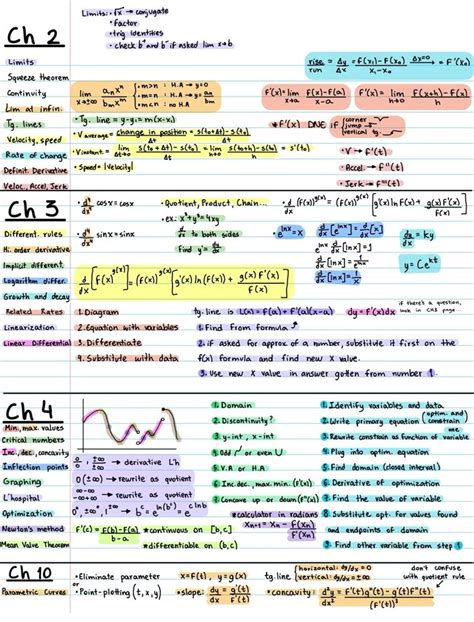 Ch 2
Limits
Squeeze theorem
Continvity
Lim at infin.
Tg. lines
Velocity, speed
Rate of change
Definit. Derivative
Veloc, Accel, Jerk
Limits: • √x → conjugate
• Factor
• trig identities
• check b⁺ and b⁻ if asked lim x→b
rise/run = Δy/Δx = f(x₁)-f(x₀)/x₁-x₀ Δx→0 = F'(x₀)
lim x→±∞ aₙxⁿ/bₘxᵐ
• m>n : H.A → y=0
• m=n : H.A → y= aₙ/bₘ
• m<n : no HA
F'(x)= lim x→a f(x)-F(a)/x-a
F'(x)= lim h→0 f(x+h)-f(x)/h
• Tg. line = y-y₁=m(x-x₁)
• V average = change in position/Δt = s(t₀+Δt)-s(t₀)/Δt
• V instant. = lim Δt→0 s(t₀+Δt)-s(t₀)/Δt = lim h→0 s(t₀+h)-s(t₀)/h = s'(t₀)
• Speed = |Velocity|
• F'(x) DNE if corner jump vertical tg.
• V → f'(t)
• Accel. → f''(t)
• Jerk → f'''(t)
Ch 3
Different. rules
Hi. order derivative
Implicit different.
Logarithm differ.
Growth and decay
Related Rates
Linearization
Linear Differential
cosx = cosx
sinx = sinx
• Quotient, Product, Chain...
• ex: x⁴+y⁴=4xy
d/dx to both sides
Find y' = dy/dx
• d/dx (F(x))^g(x) = (F(x))^g(x) [g'(x)ln F(x) + g(x)F'(x)/F(x)]
d/dx [F(x)^g(x)] = (F(x))^g(x) [g'(x)ln(F(x)) + g(x)F'(x)/F(x)]
e^lnx = x
d/dx [e^lnx] = d/dx [x]
e^lnx d/dx [lnx] = 1
x d/dx [lnx] = 1
d/dx [lnx] = 1/x
dy/dx = ky
y = Ce^kt
if there's a question, look in Ch3 page.
1. Diagram
2. Equation with variables
3. Differentiate
4. Substitute with data
tg. line is L(x) = F(a)+F'(a)(x-a)
dy = f'(x)dx
1. Find from formula
2. if asked for approx of a number, substitute it first on the
f(x) formula and find new x value.
3. Use new X value in answer gotten from number 1
Ch 4
Min, max. values
Critical numbers
Inc, dec, concavity
Inflection points
Graphing
L'hospital
Optimization
Newton's method
Mean Valve Theorem
0/0, ±∞/±∞ → derivative L'h
0(±∞) → rewrite as quotient
∞-∞ → rewrite as quotient
F'(c) = F(b)-F(a)/b-a
*continuous on [b,c]
*differentiable on (b,c)
1. Domain
2. Discontinuity?
3. y-int, x-int
4. Odd or even
5. V.A or H.A
6. Inc, dec, max, min. (f'(x))
7. Concave up or down (f''(x))
*calculator in radians
Xₙ₊₁ = Xₙ - F(Xₙ)/F'(Xₙ)
1. Identify variables and data
2. Write primary equation (optim. and) constrain one
3. Rewrite constrain as function of variable
4. Plug into optim. equation
5. Find domain (closed interval)
6. Derivative of optimization
7. Find the value of variable
8. Substitute opt. For values found
and endpoints of domain
9. Find other variable from step 1
Ch 10
Parametric Curves
• Eliminate parameter
or
• Point-plotting (t, x, y)
x=F(t), y=g(x)
• slope: dy/dx = g'(t)/F'(t)
tg. line horizontal: dy/dx = 0
vertical: dx/dy = 0
don't confuse
with quotient rule
• concavity: d²y/dx² = F'(t)g''(t)-g'(t)F''(t)/(F'(t))³